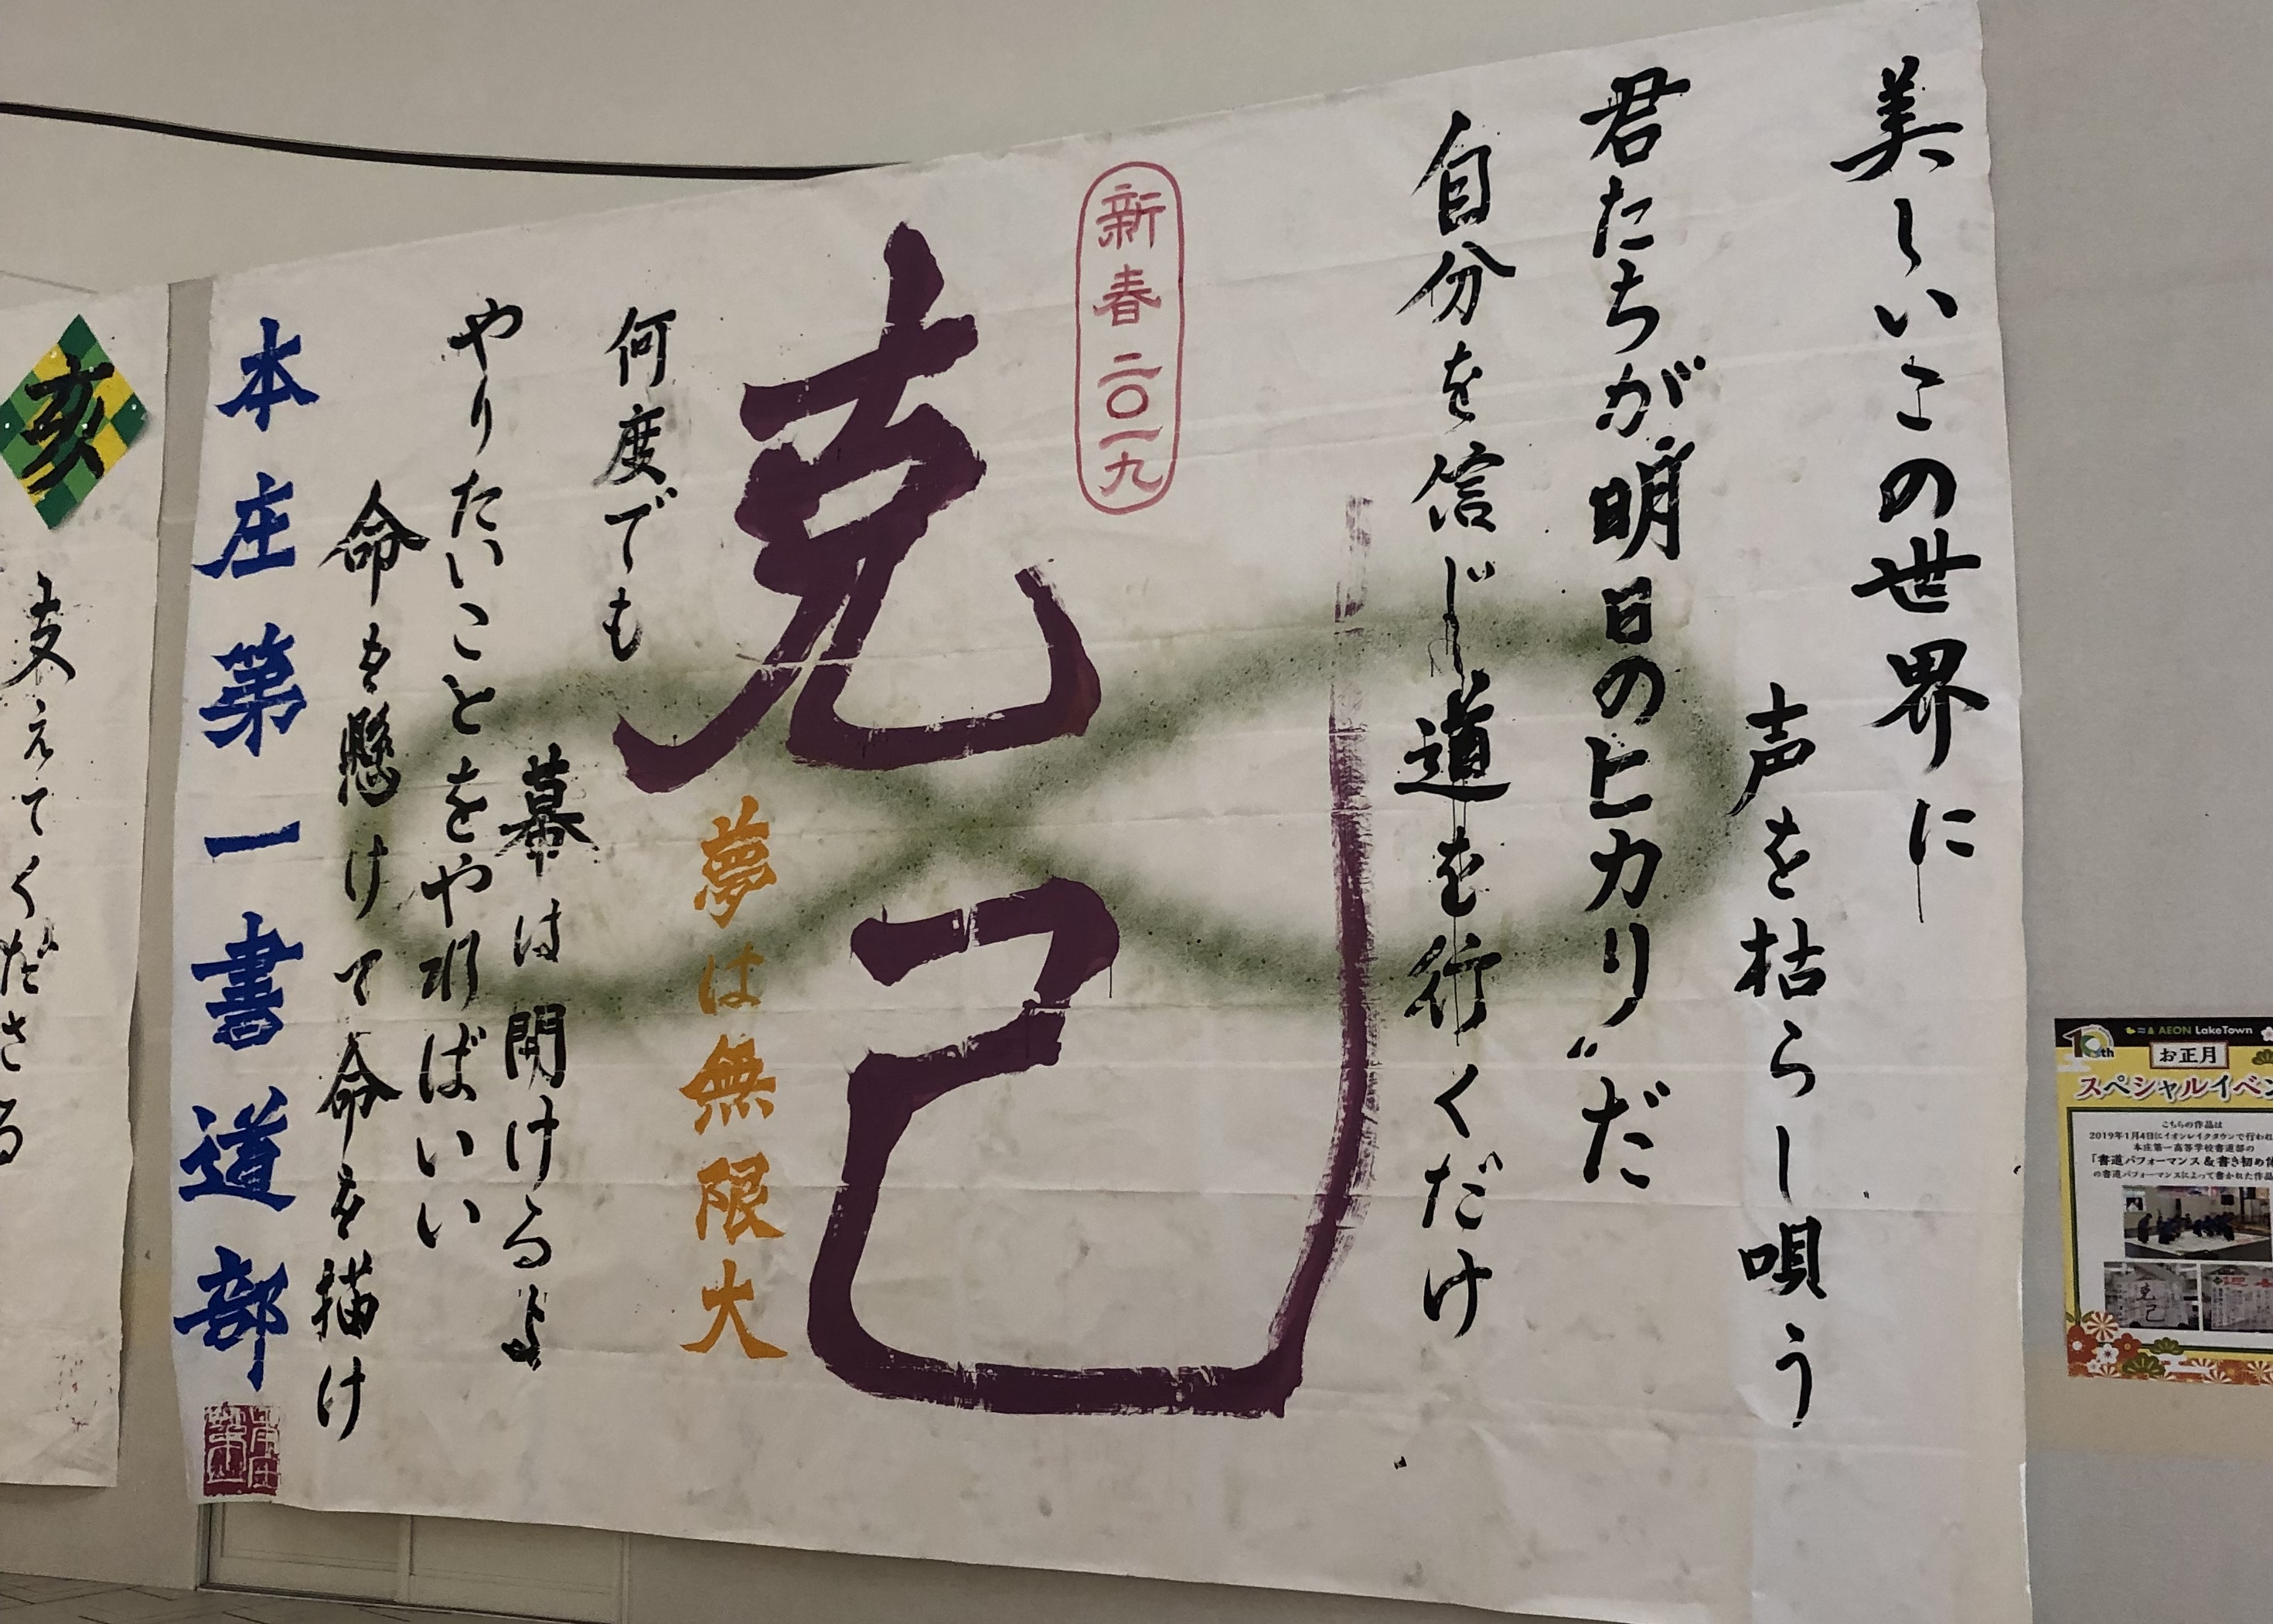 美しいこの世界に
声を枯らし唄う
君たちが〝明日のヒカリ〟だ
自分を信じ道を行くだけ
新春二〇一九
克己
夢は無限大
何度でも
幕は開けるよ
やりたいことをやればいい
命を懸けて命を描け
本庄第一書道部
亥
支えてくださる
10th
AEON LakeTown
お正月
スペシャルイベン
こちらの作品は
2019年1月4日にイオンレイクタウンで行われ
本庄第一高等学校書道部の
「書道パフォーマンス&書き初め
の書道パフォーマンスによって書かれた作品